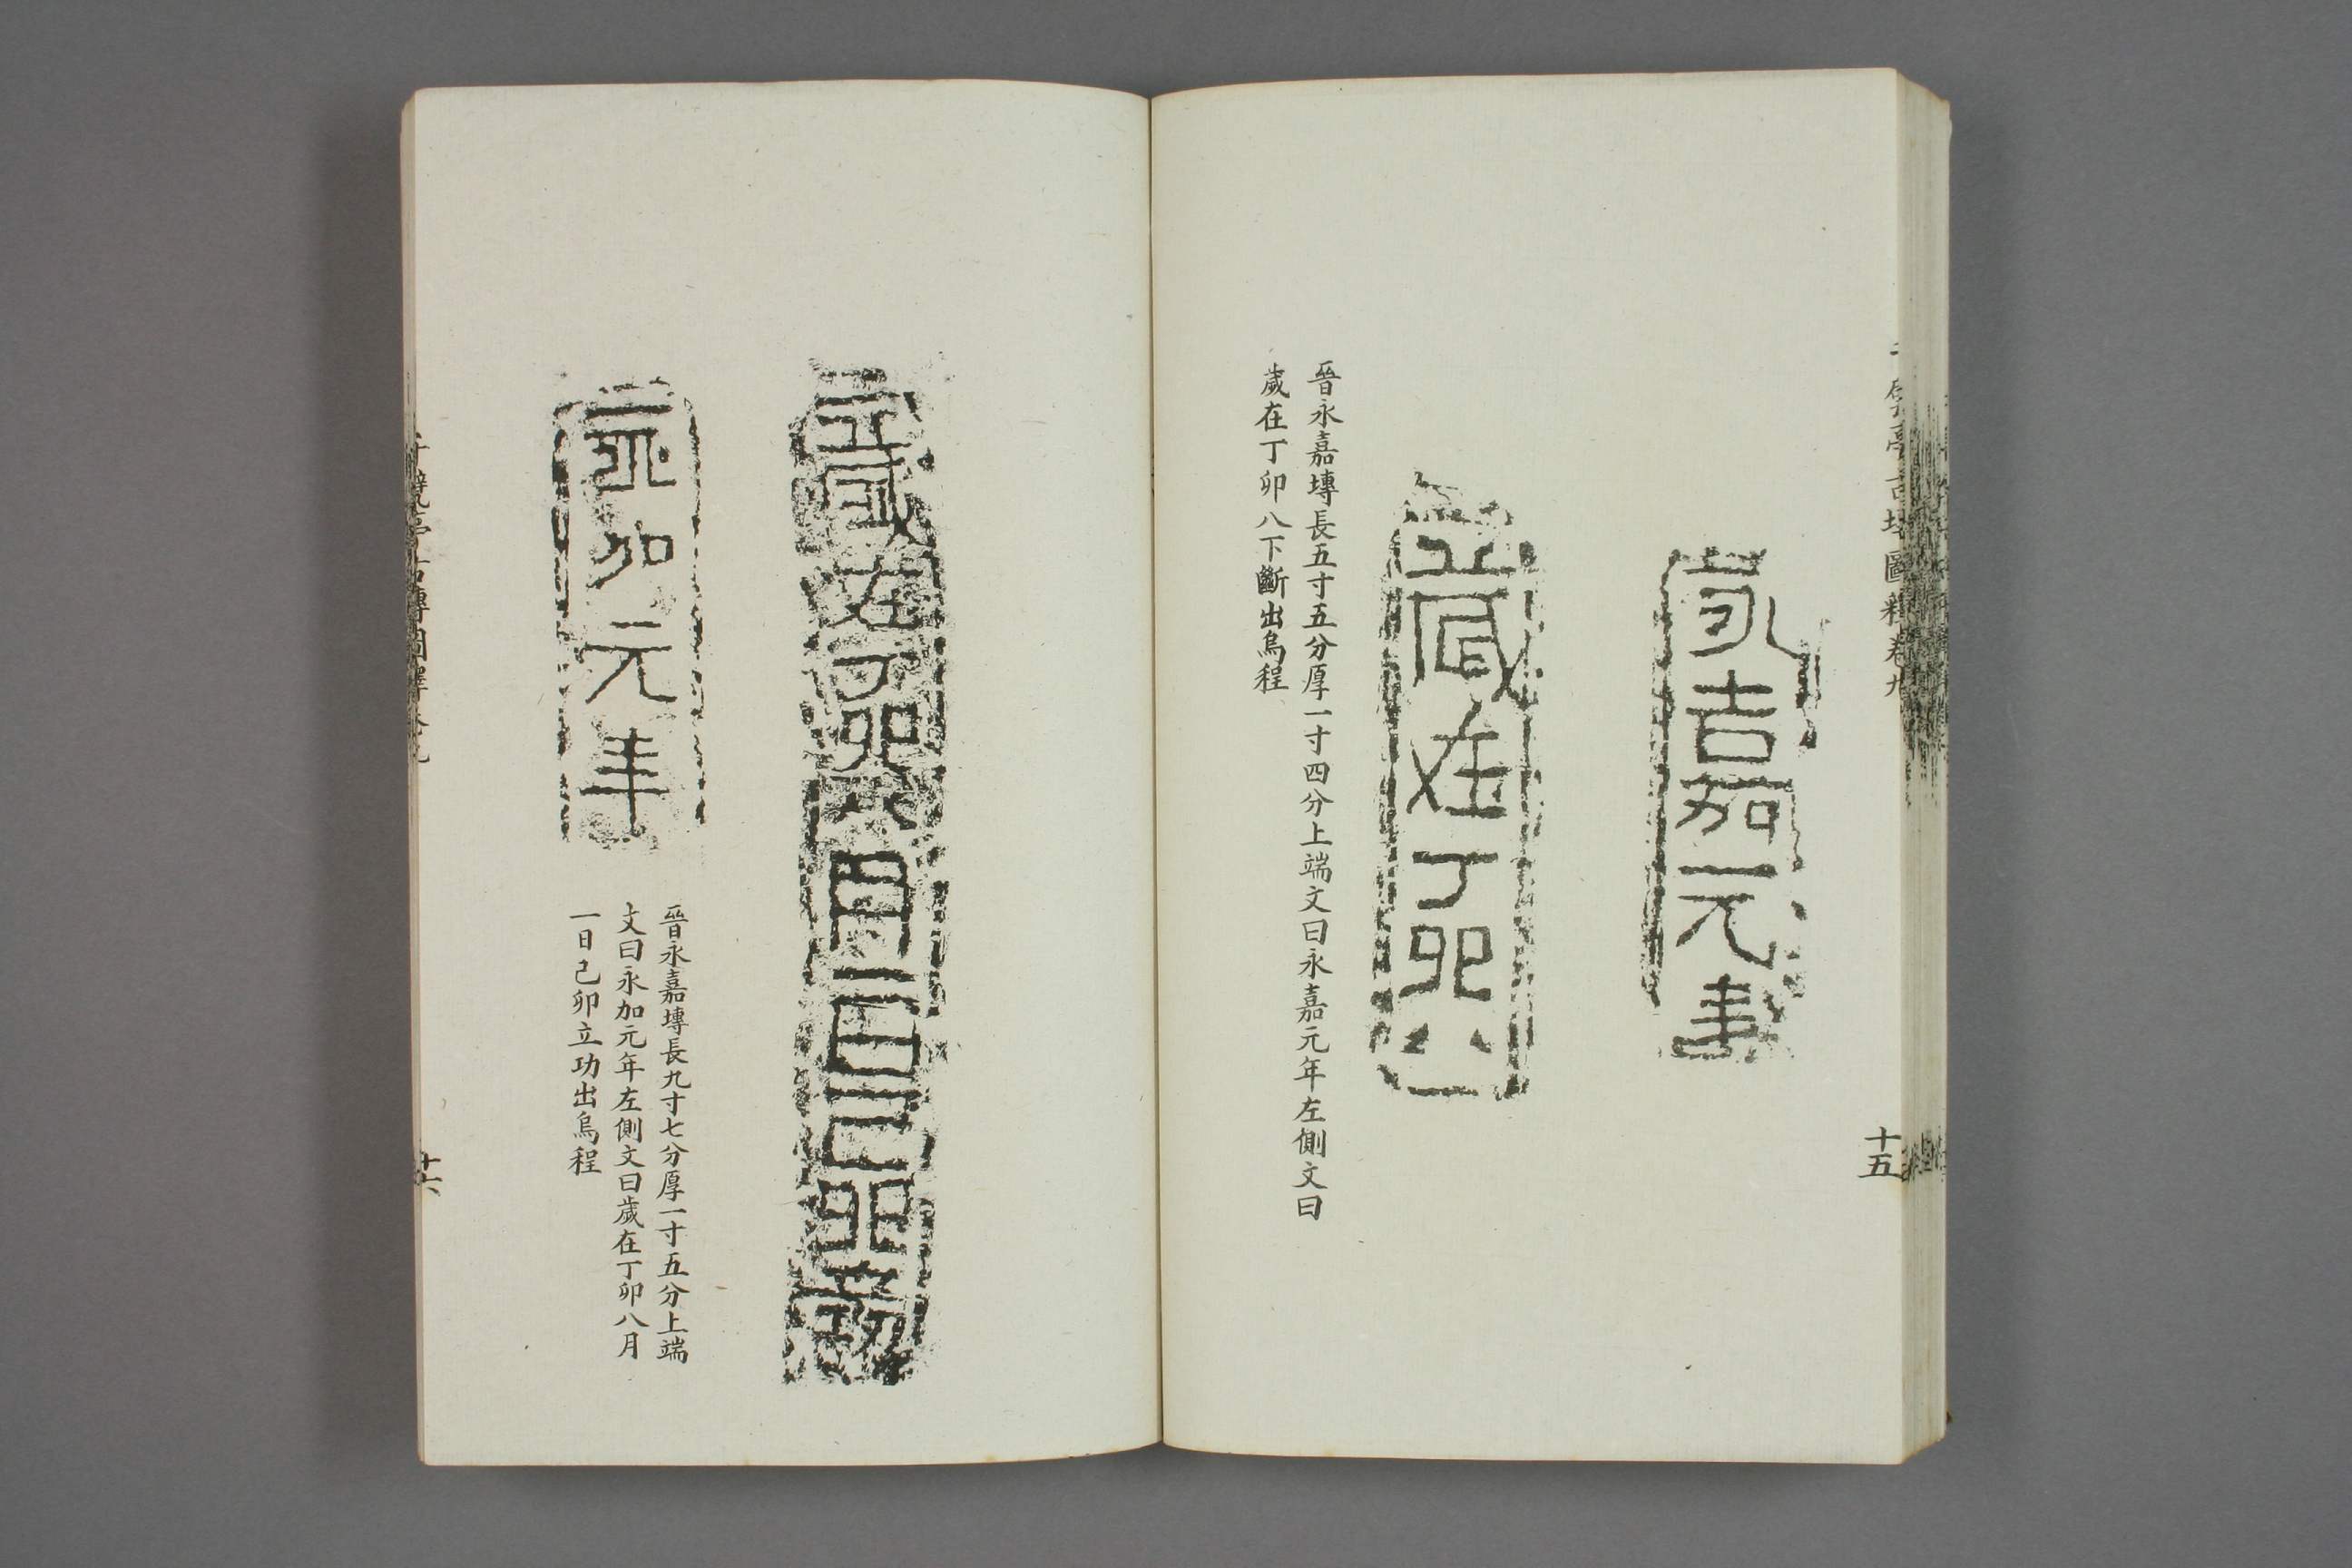 永嘉元年
歲在丁卯八
晉永嘉塼長五寸五分厚一寸四分上端文曰永嘉元年左側文曰
歲在丁卯八下斷出烏程
十五
歲在丁卯八月一日己卯立功
永加元年
晉永嘉塼長九寸七分厚一寸五分上端
文曰永加元年左側文曰歲在丁卯八月
一日己卯立功出烏程
十六